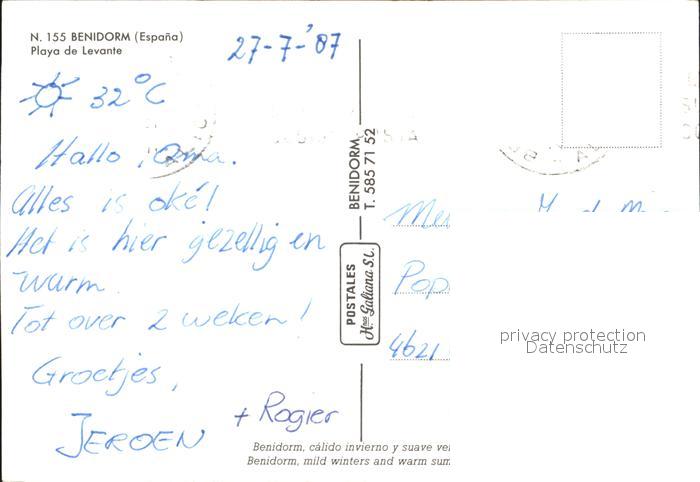 N. 155 BENIDORM (España)
Playa de Levante
27-7-'87
32°C
Hallo, Oma.
Alles is oké!
Het is hier gezellig en
warm.
Tot over 2 weken!
Groetjes,
JEROEN
+ Rogier
BENIDORM
T. 585 71 52
POSTALES
Hnos Galiana S.L.
4621
privacy protection
Datenschutz
Benidorm, cálido invierno y suave
Benidorm, mild winters and warm